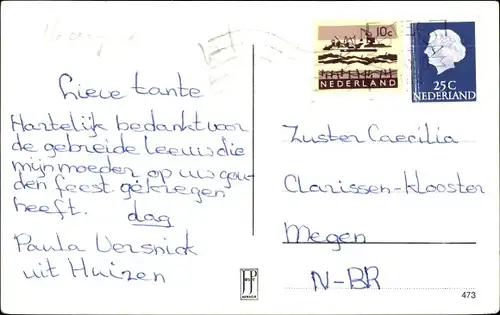 10c
NEDERLAND
25C
NEDERLAND
Lieve tante
Hartelijk bedankt voor
de gebreide leeuw die
mijn moeder op uw gou-
den feest gekregen
heeft. dag
Paula Versnick
uit Huizen
Zuster Caecilia
Clarissen-klooster
Megen
N-BR
473